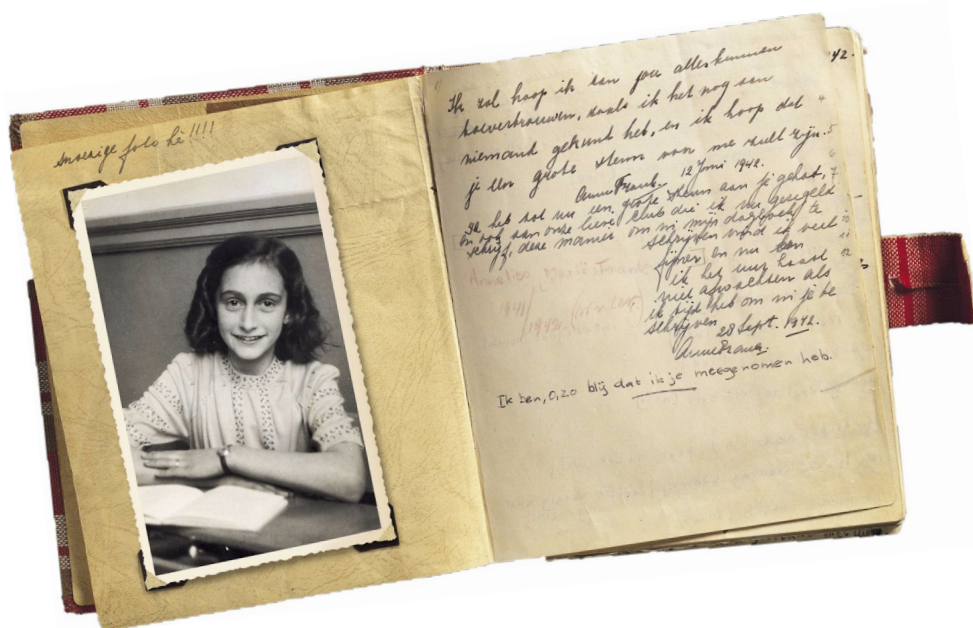 snoezige foto hè!!!!
Ik zal hoop ik aan jou alles kunnen
toevertrouwen, zoals ik het nog aan
niemand gekunt heb, en ik hoop dat
je een grote steun van me zult zijn.
Anne Frank. 12 Juni 1942.
Ik heb tot nu een grote steun aan je gehad,
en ook aan onze lieve club die ik nu geregeld
schrijf, deze manier om in mijn dagboek te
schrijven vind ik veel
fijner en nu kan
ik het uur haast
niet afwachten als
ik tijd heb om in je te
schrijven
28 Sept. 1942.
Anne Frank.
Ik ben, o, zo blij dat ik je meegenomen heb.
42.
4
5
6
7
10
11
12
Annelies Marie Frank
1941/
1942